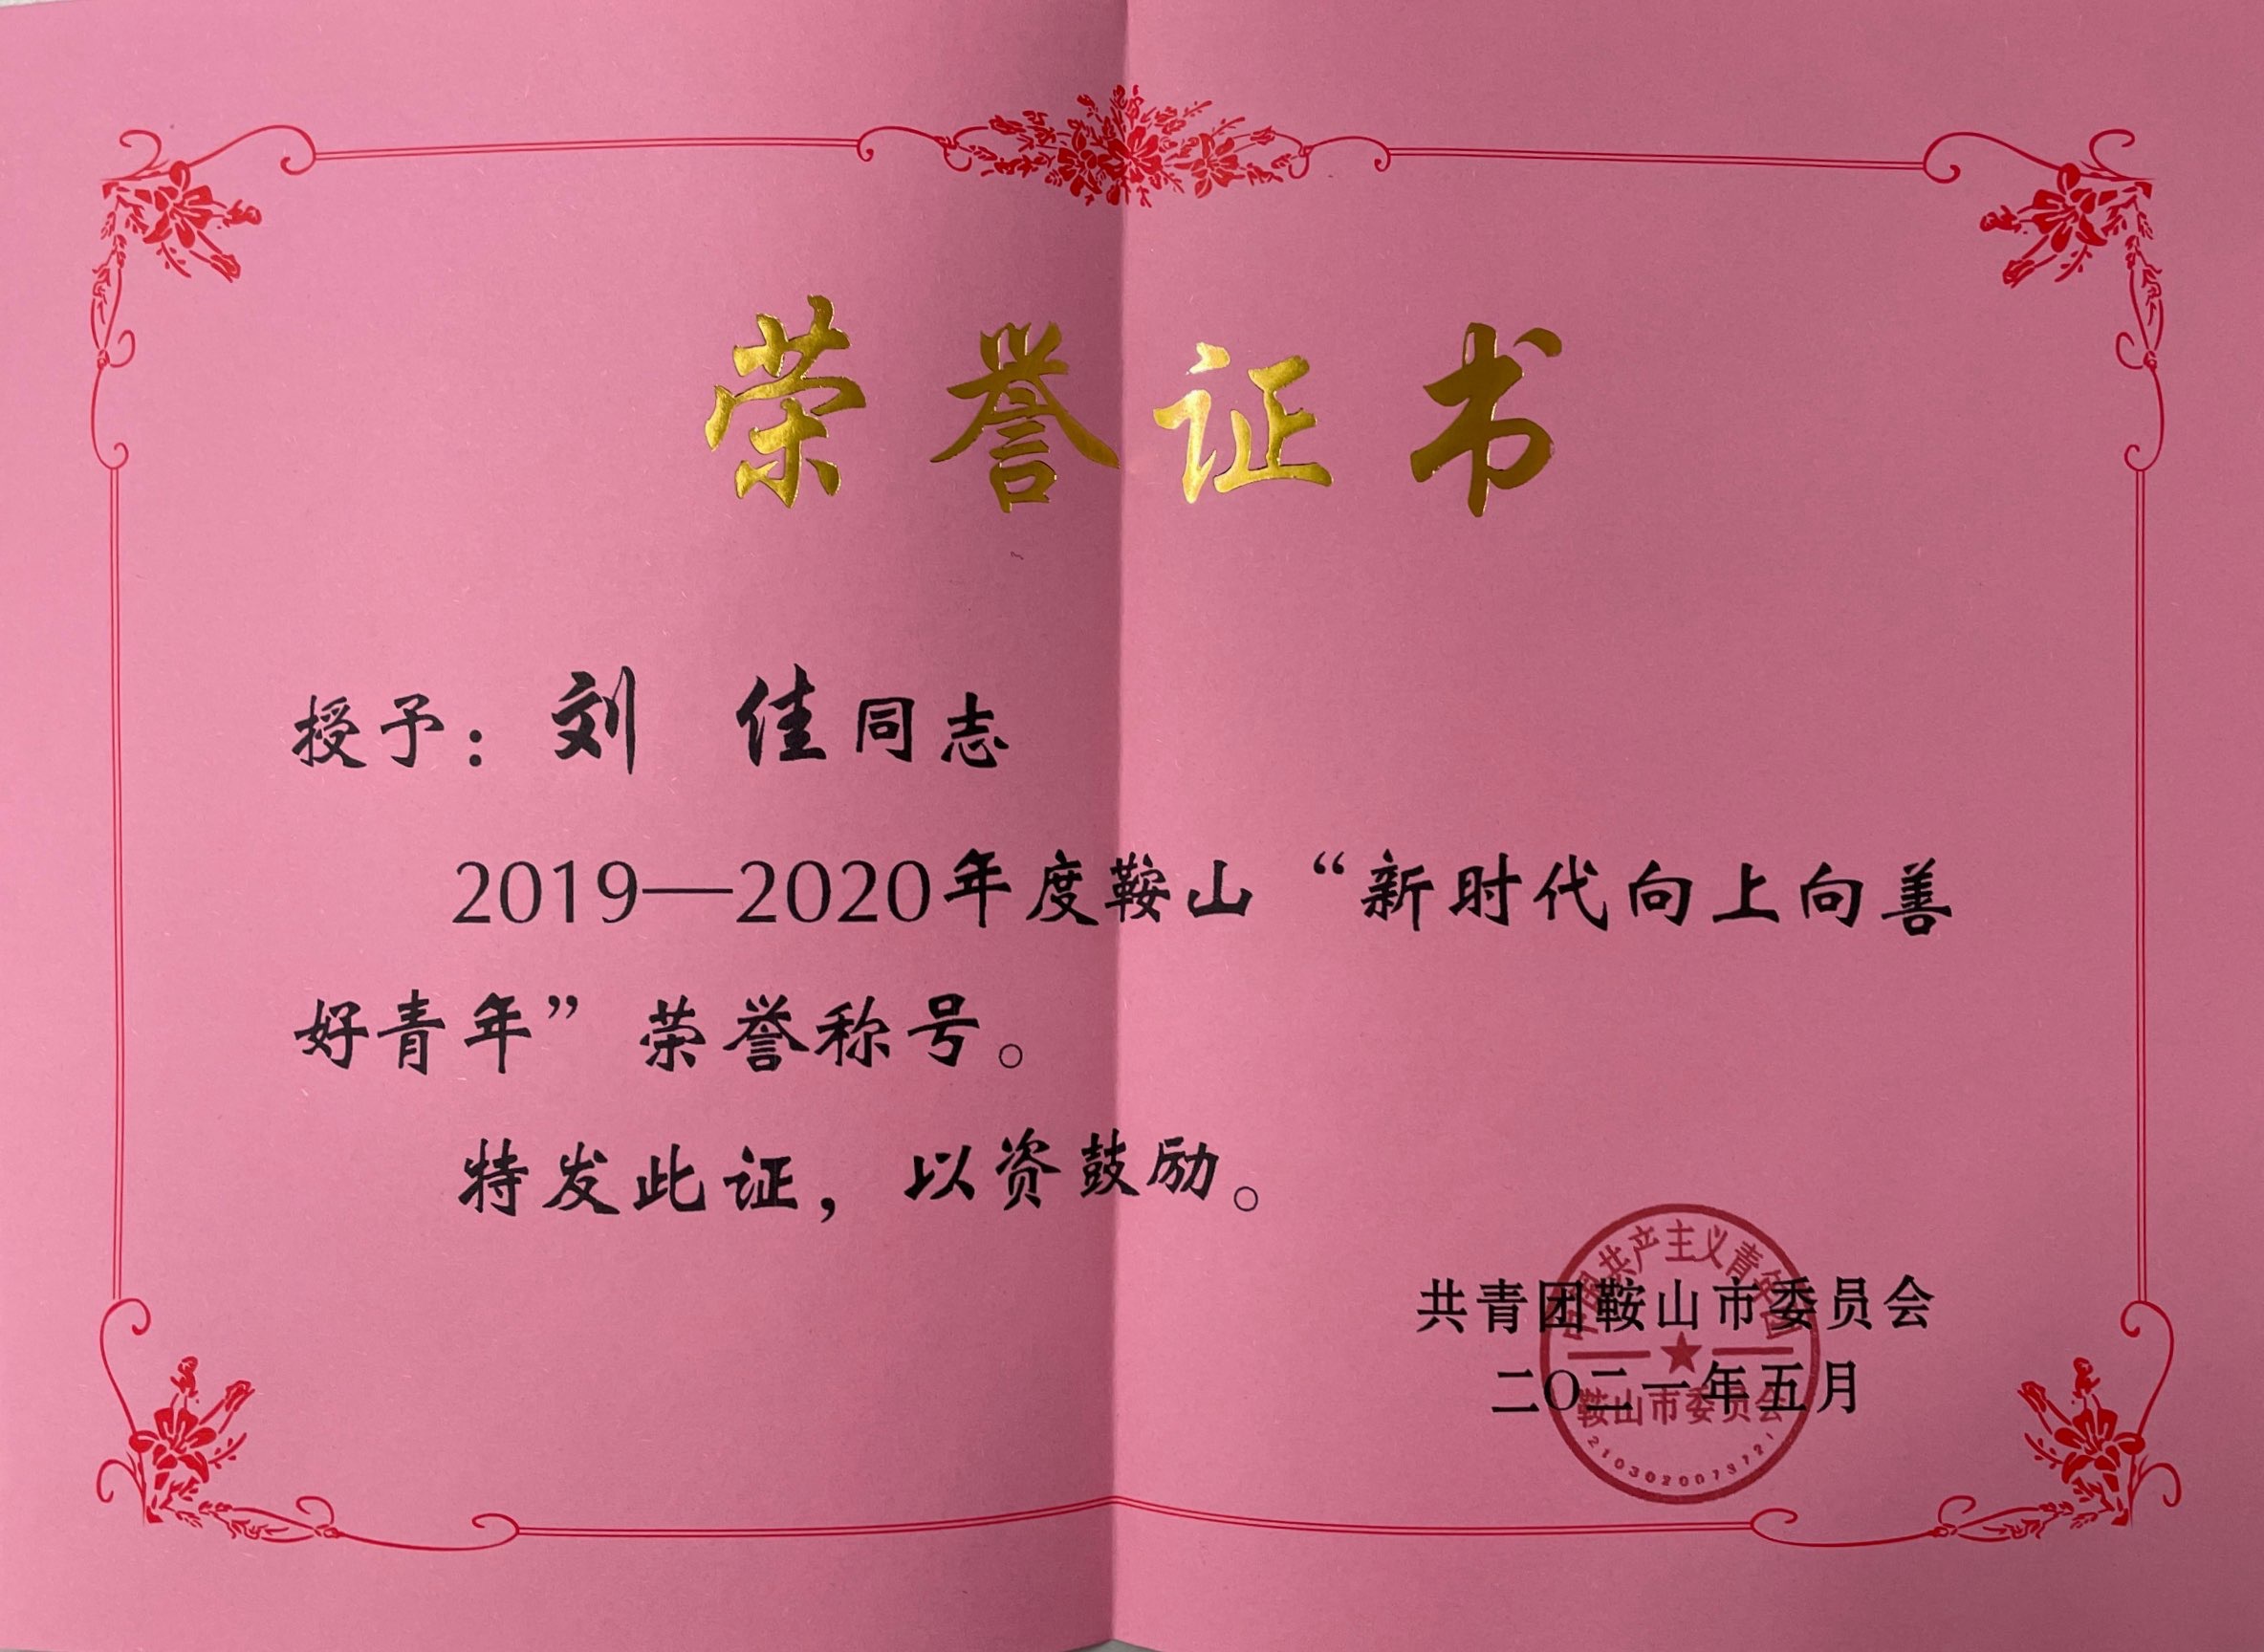 荣誉证书
授予：刘 佳同志
2019—2020年度鞍山“新时代向上向善
好青年”荣誉称号。
特发此证，以资鼓励。
中国共产主义青年团
共青团鞍山市委员会
二〇二一年五月
鞍山市委员会